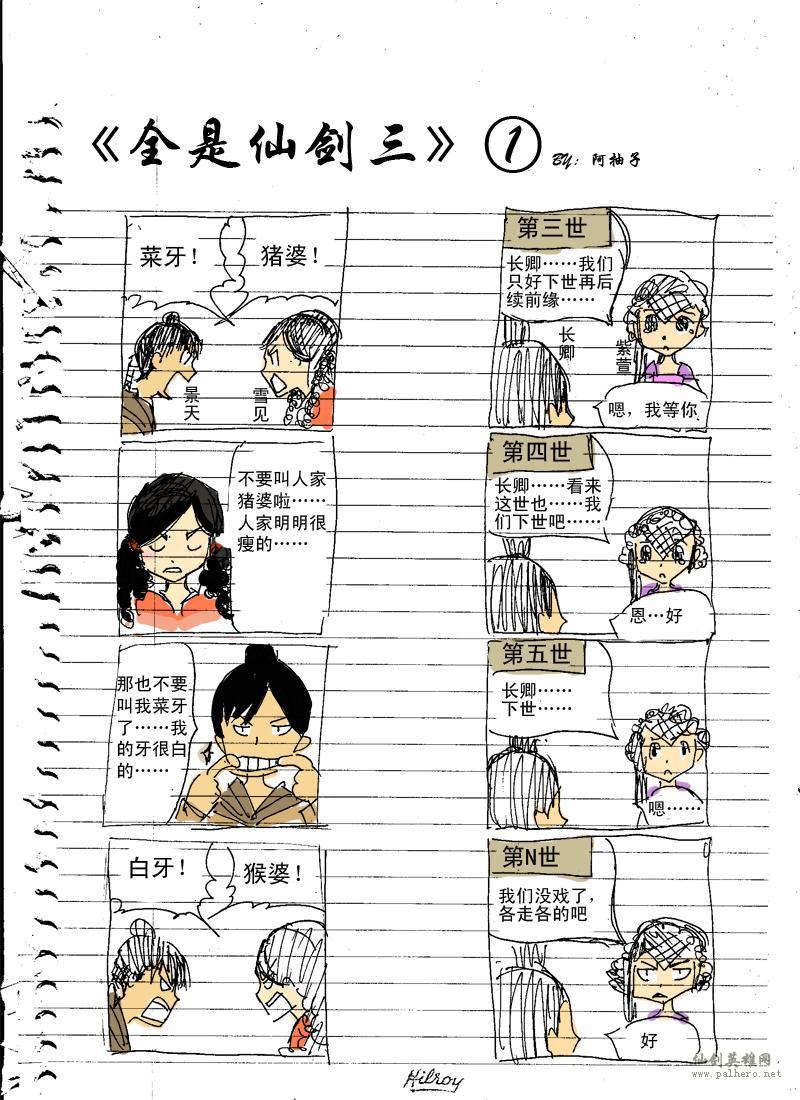 《全是仙剑三》①
BY：阿柚子
菜牙！
猪婆！
景天
雪见
不要叫人家
猪婆啦……
人家明明很
瘦的……
那也不要
叫我菜牙
了……我
的牙很白
的……
白牙！
猴婆！
第三世
长卿……我们
只好下世再后
续前缘……
长卿
紫萱
嗯，我等你
第四世
长卿……看来
这世也……我
们下世吧……
恩…好
第五世
长卿……
下世……
嗯……
第N世
我们没戏了，
各走各的吧
好
仙剑英雄网
www.palhero.net
Hilroy